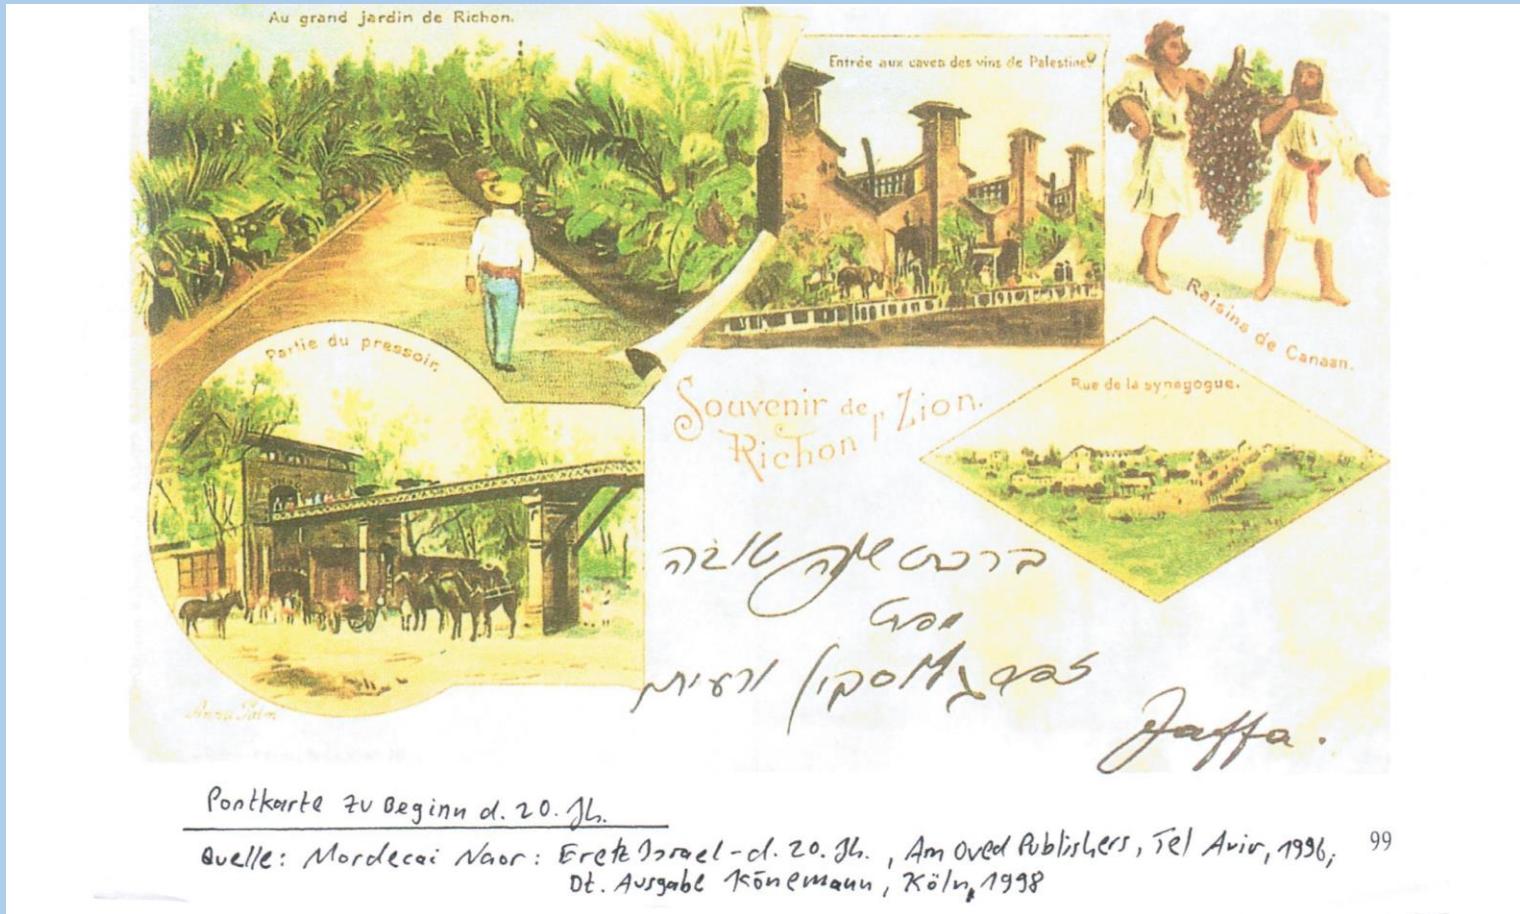 Au grand jardin de Richon.
Entrée aux caves des vins de Palestine.
Raisins de Canaan.
Partie du pressoir.
Rue de la synagogue.
Souvenir de
Richon l' Zion.
ברכת שנה טובה
מאת
ורעיתו
Jaffa.
Anna Palm
Postkarte zu Beginn d. 20. Jh.
Quelle: Mordecai Naor: Eretz Israel - d. 20. Jh., Am Oved Publishers, Tel Aviv, 1996;
Dt. Ausgabe Könemann, Köln, 1998
99